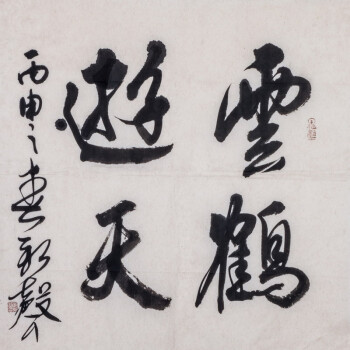 雲鶴
遊天
丙申之春